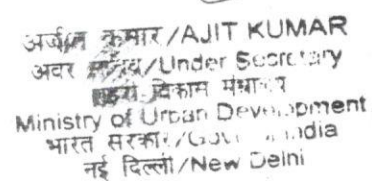 कुमार/AJIT KUMAR
अवर /Under Secretary
विकास
Ministry of Urban Development
भारत सरकार/ India
नई दिल्ली/New Delhi